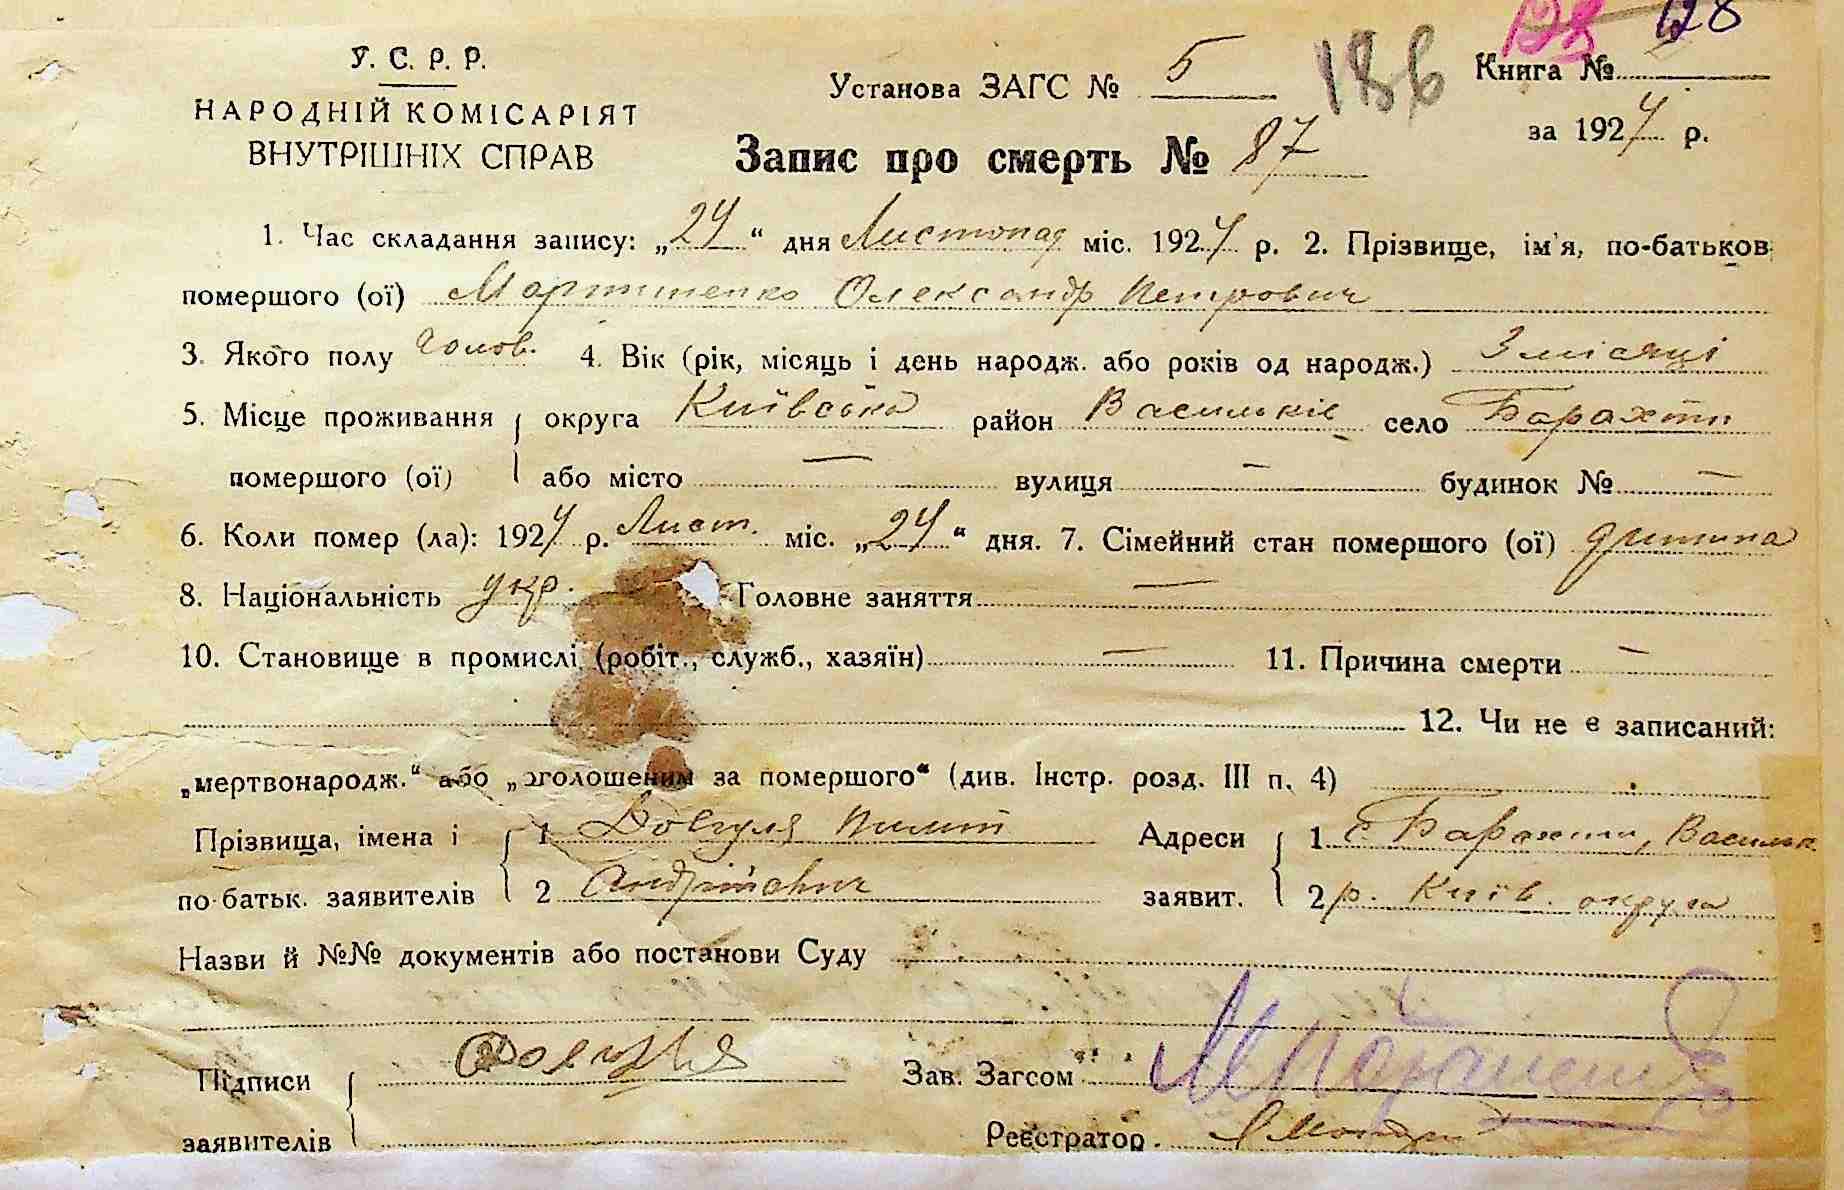 128 128
У. С. Р. Р.
НАРОДНІЙ КОМІСАРІЯТ
ВНУТРІШНІХ СПРАВ
Установа ЗАГС № 5 186 Книга №
за 1924 р.
Запис про смерть № 87
1. Час складання запису: „24“ дня Листопад міс. 1924 р. 2. Прізвище, ім'я, по-батьков
помершого (ої) Мартиненко Олександр Петрович
3. Якого полу чолов. 4. Вік (рік, місяць і день народж. або років од народж.) 3 місяці
5. Місце проживання округа Київська район Васильків село Барахти
помершого (ої) або місто — вулиця — будинок № —
6. Коли помер (ла): 1924 р. Лист. міс. „24“ дня. 7. Сімейний стан помершого (ої) дитина
8. Національність укр. Головне заняття —
10. Становище в промислі (робіт., служб., хазяїн) — 11. Причина смерти —
12. Чи не є записаний:
„мертвонародж.“ або „оголошеним за помершого“ (див. Інстр. розд. III п. 4)
Прізвища, імена і 1 Довгуля Пилип Адреси 1 с. Барахти, Васильк.
по-батьк. заявителів 2 Андрійович заявит. 2 р. Київ. округа
Назви й №№ документів або постанови Суду
Підписи Довгуля Зав. Загсом
заявителів Реєстратор.